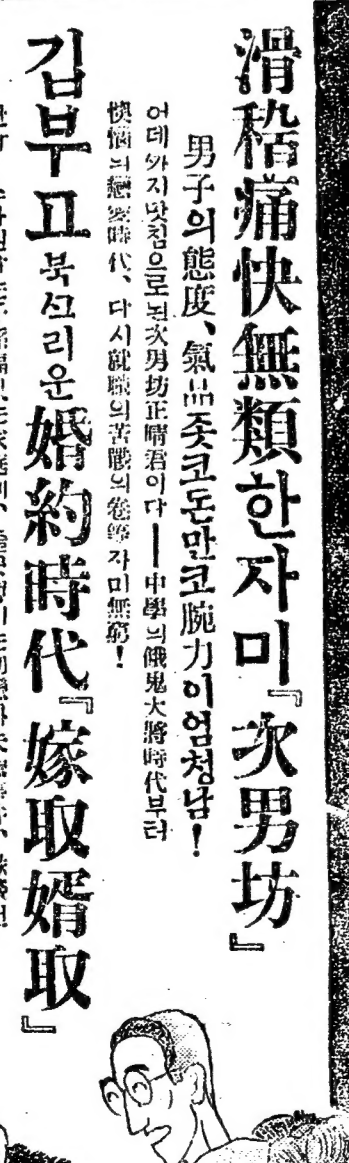 滑稽痛快無類한자미『次男坊』
男子의態度、氣品좃코돈만코腕力이엄청남!
어데싸지맛침으로된次男坊正晴君이다——中學의餓鬼大將時代부터
懊惱의戀愛時代、다시就職의苦戰의卷等자미無窮!
깁부고북그리운婚約時代『嫁取婿取』